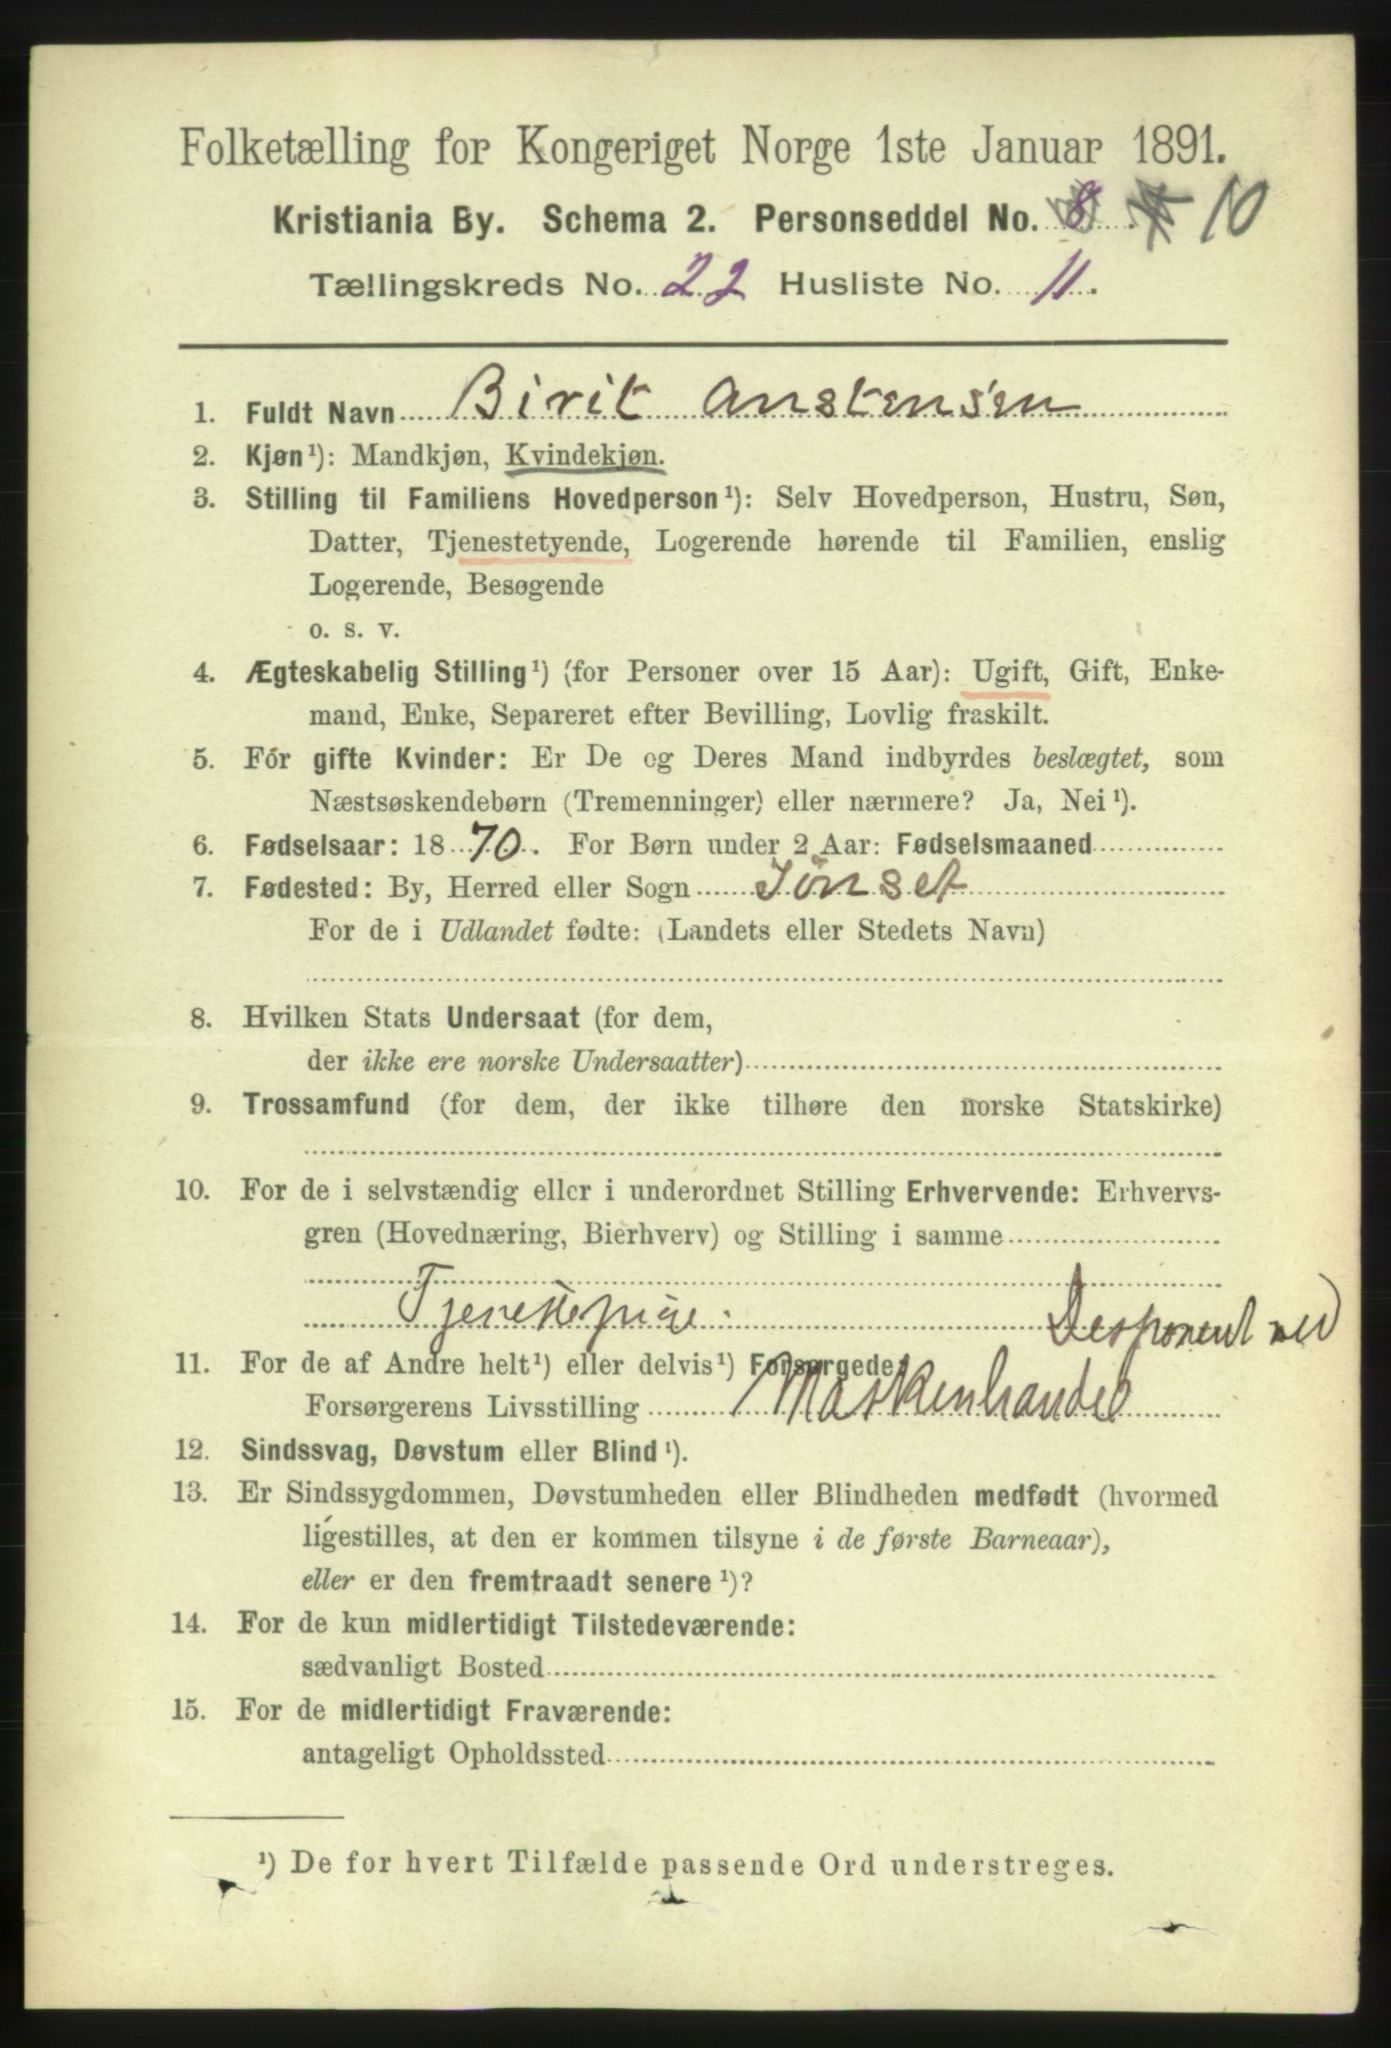 Folketælling for Kongeriget Norge 1ste Januar 1891.
Kristiania By. Schema 2. Personseddel No. 8 10
Tællingskreds No. 22 Husliste No. 11.
1. Fuldt Navn Birit Anstensen
2. Kjøn ¹): Mandkjøn, Kvindekjøn.
3. Stilling til Familiens Hovedperson ¹): Selv Hovedperson, Hustru, Søn,
Datter, Tjenestetyende, Logerende hørende til Familien, enslig
Logerende, Besøgende
o. s. v.
4. Ægteskabelig Stilling ¹) (for Personer over 15 Aar): Ugift, Gift, Enke-
mand, Enke, Separeret efter Bevilling, Lovlig fraskilt.
5. For gifte Kvinder: Er De og Deres Mand indbyrdes beslægtet, som
Næstsøskendebørn (Tremenninger) eller nærmere? Ja, Nei ¹).
6. Fødselsaar: 1870. For Børn under 2 Aar: Fødselsmaaned
7. Fødested: By, Herred eller Sogn Tønset
For de i Udlandet fødte: (Landets eller Stedets Navn)
8. Hvilken Stats Undersaat (for dem,
der ikke ere norske Undersaatter)
9. Trossamfund (for dem, der ikke tilhøre den norske Statskirke)
10. For de i selvstændig eller i underordnet Stilling Erhvervende: Erhvervs-
gren (Hovednæring, Bierhverv) og Stilling i samme
Tjenestepige. Desponent ved
11. For de af Andre helt ¹) eller delvis ¹) Forsørgede:
Forsørgerens Livsstilling Maskenhandel
12. Sindssvag, Døvstum eller Blind ¹).
13. Er Sindssygdommen, Døvstumheden eller Blindheden medfødt (hvormed
ligestilles, at den er kommen tilsyne i de første Barneaar),
eller er den fremtraadt senere ¹)?
14. For de kun midlertidigt Tilstedeværende:
sædvanligt Bosted
15. For de midlertidigt Fraværende:
antageligt Opholdssted
¹) De for hvert Tilfælde passende Ord understreges.